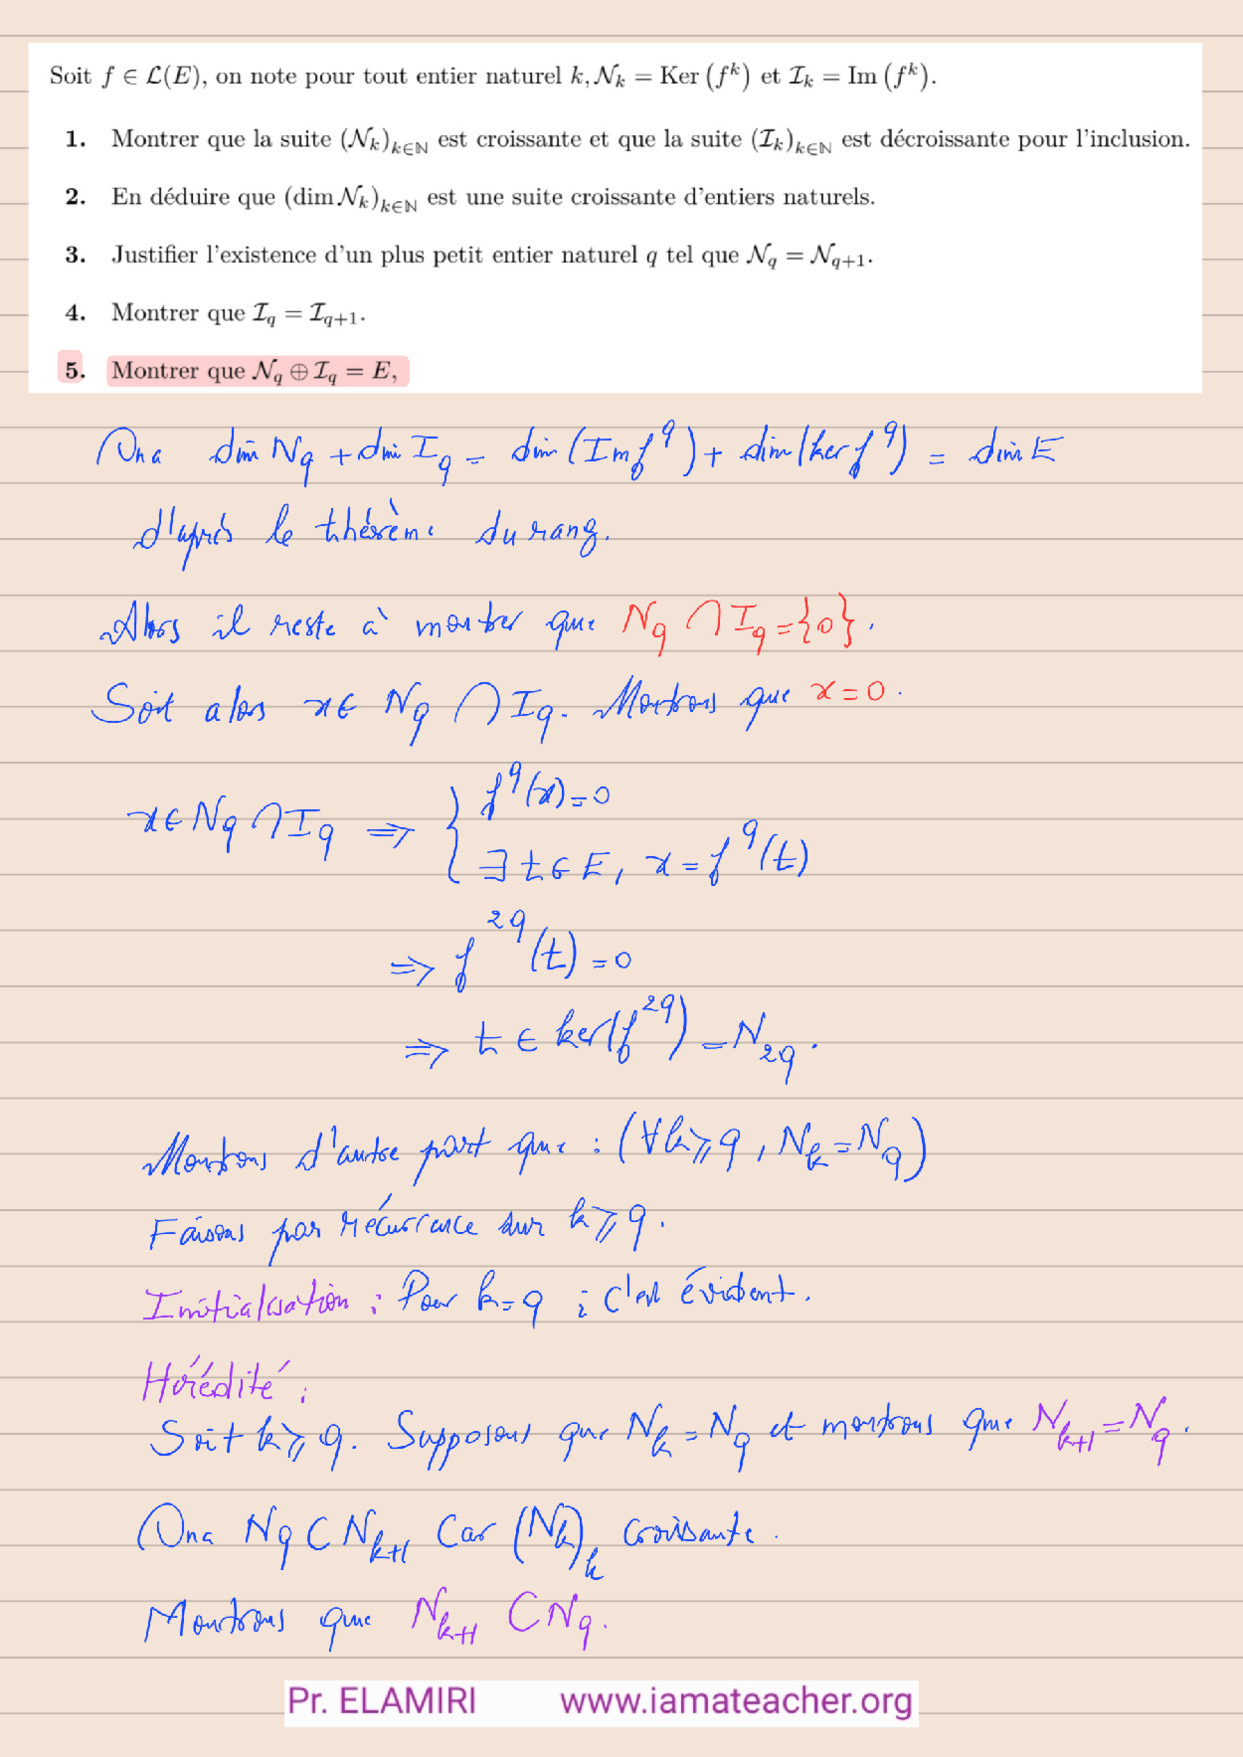 Soit f ∈ ℒ(E), on note pour tout entier naturel k, 𝒩ₖ = Ker (fᵏ) et ℐₖ = Im (fᵏ).
1. Montrer que la suite (𝒩ₖ)ₖ∈ℕ est croissante et que la suite (ℐₖ)ₖ∈ℕ est décroissante pour l'inclusion.
2. En déduire que (dim 𝒩ₖ)ₖ∈ℕ est une suite croissante d'entiers naturels.
3. Justifier l'existence d'un plus petit entier naturel q tel que 𝒩_q = 𝒩_{q+1}.
4. Montrer que ℐ_q = ℐ_{q+1}.
5. Montrer que 𝒩_q ⊕ ℐ_q = E,
On a dim N_q + dim I_q = dim (Im f^q) + dim (ker f^q) = dim E
d'après le théorème du rang.
Alors il reste à montrer que N_q ∩ I_q = {0}.
Soit alors x ∈ N_q ∩ I_q. Montrons que x = 0.
x ∈ N_q ∩ I_q ⇒ { f^q(x) = 0
∃ t ∈ E, x = f^q(t)
⇒ f^{2q}(t) = 0
⇒ t ∈ ker(f^{2q}) = N_{2q}.
Montrons d'autre part que : (∀k ⩾ q, N_k = N_q)
Faisons par récurrence sur k ⩾ q.
Initialisation : Pour k = q ; c'est évident.
Hérédité :
Soit k ⩾ q. Supposons que N_k = N_q et montrons que N_{k+1} = N_q.
On a N_q ⊂ N_{k+1} car (N_k)_k croissante.
Montrons que N_{k+1} ⊂ N_q.
Pr. ELAMIRI www.iamateacher.org